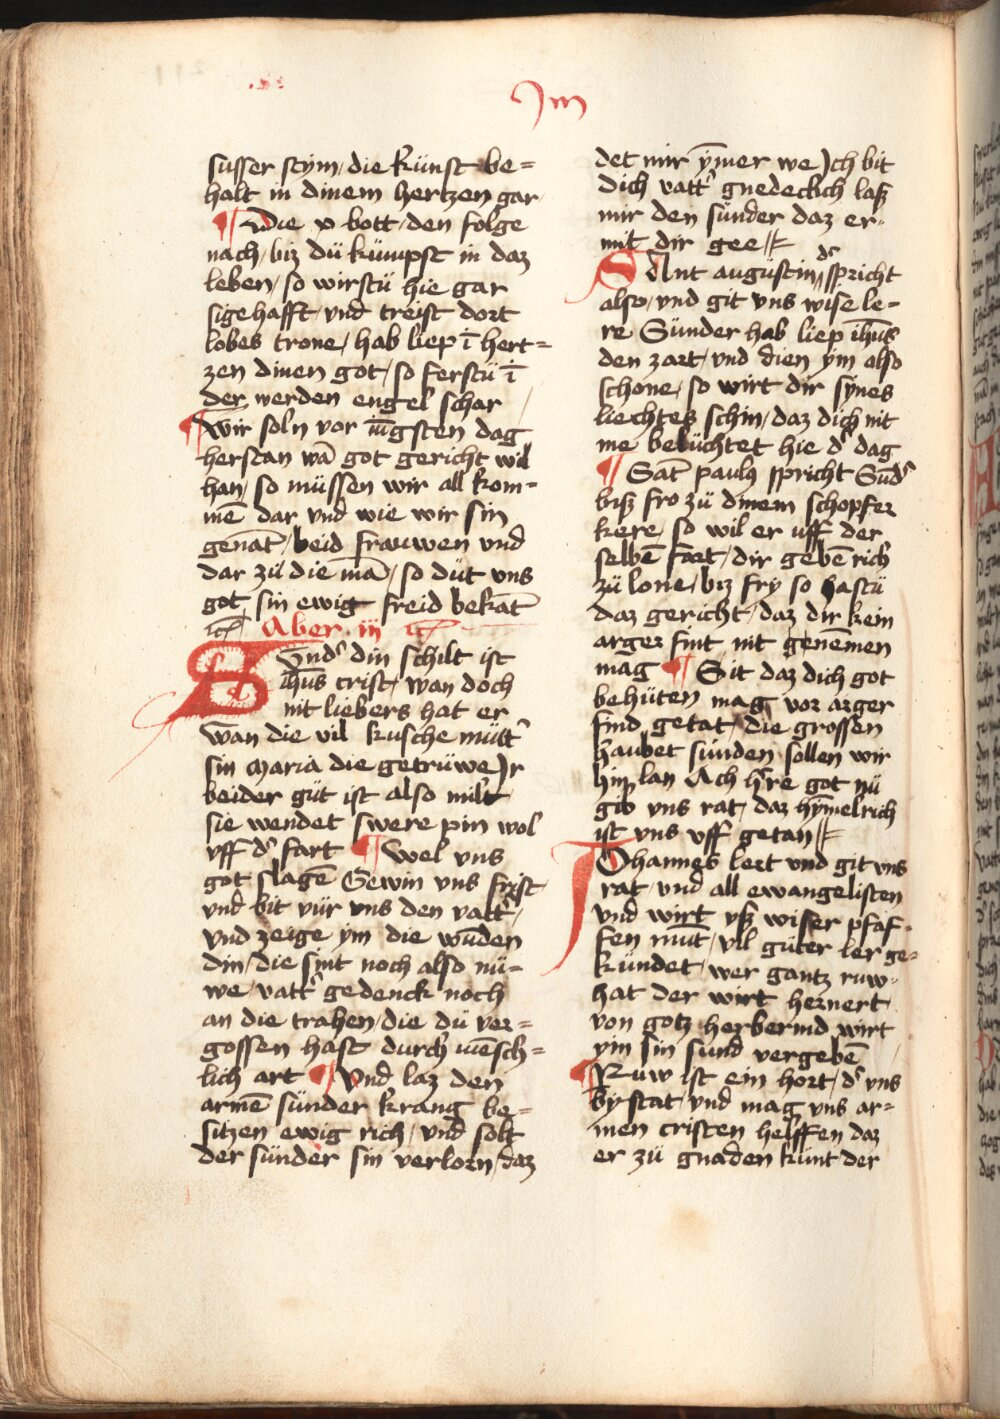 Jm
susser stym / die künst be=
halt in dinem hertzen gar
¶ Die x bott / den folge
nach / biz dü kümpst in daz
leben / so wirstü hie gar
sigehafft / vnd treist dort
lobes trone / hab liep ī hert=
zen dinen got / so ferstü ī
der werden engel schar
¶ Wir soln vor iūgsten dag
herstan wā got gericht wil
han / so müssen wir all kom=
mē dar vnd wie wir sin
genāt / beid frauwen vnd
dar zü die mā / so düt vns
got sin ewig freid bekāt
Aber iij
Sündʼ din schilt ist
ihūs crist / wan doch
nit liebers hat er
wan die vil kusche müttʼ
sin maria die getrüwe Jr
beider güt ist also milt
sie wendet swere pin wol
vff dʼ fart ¶ Wel vns
got slagē Gewin vns frist
vnd bit vür vns den vattʼ /
vnd zeige ym die wūden
din / die sint noch also nü=
we / vattʼ gedenck noch
an die trahen / die dü ver=
gossen hast durch mēsch=
lich art ¶ Vnd laz den
armē sünder krang be=
sitzen ewig rich / vnd solt
der sünder sin verlorn / daz
det mir ȳmer we Jch bit
dich vattʼ gnedeclich laß
mir den sünder daz er
mit dir gee
SAnt augustin dʼ spricht
also / vnd git vns wise le=
re Sünder hab liep ihūs
den zart / vnd dien ym also
schone / so wirt dir synes
liechtes schin / daz dich nit
me belüchtet hie dʼ dag
¶ Sāt paulus spricht Sūdʼ
biß fro zü dinem schopfer
kere / so wil er vff der
selbē fart / dir gebē rich
zü lone / biz fry so hastü
daz gericht / daz dir kein
arger fint nit genēmen
mag ¶ Sit daz dich got
behüten mag vor arger
find getat / die grossen
haubet sünden sollen wir
hin lan Ach hʼre got nü
gib vns rat / daz hȳmelrich
ist vns vff getan
JOhannes lert vnd git vns
rat / vnd all ewangelisten
vnd wirt vß wiser pfaf=
fen mūt / vil güter ler ge=
kündet / wer gantz ruw
hat der wirt hernert
von gotz herbermd wirt
ym sin sünd vergebē
¶ Ruw ist ein hort / dʼ vns
by stat / vnd mag vns ar=
men cristen helffen daz
er zü gnaden künt der